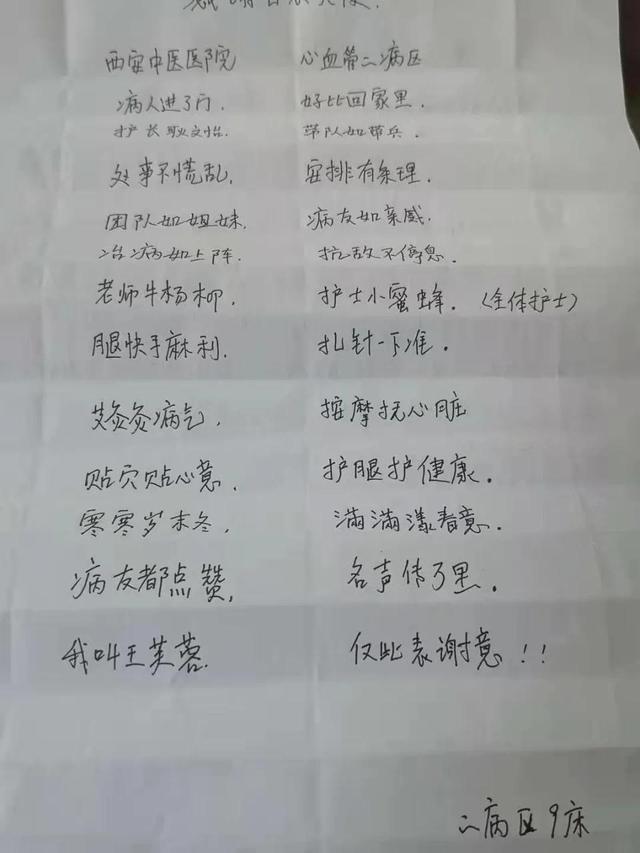 感谢白衣天使.
西安中医医院 心血管二病区
病人进了门. 好比回家里.
护长耿文怡. 带队如带兵.
处事不慌乱. 安排有条理.
团队如姐妹. 病友如亲戚.
治病如上阵. 抗敌不停息.
老师牛杨柳. 护士小蜜蜂. (全体护士)
腿快手麻利. 扎针一下准.
艾灸灸病气. 按摩抚心脏
贴穴贴心意. 护腿护健康.
寒寒岁末冬. 满满漾春意.
病友都点赞. 名声传了里.
我叫王芙蓉. 仅此表谢意!!
二病区9床